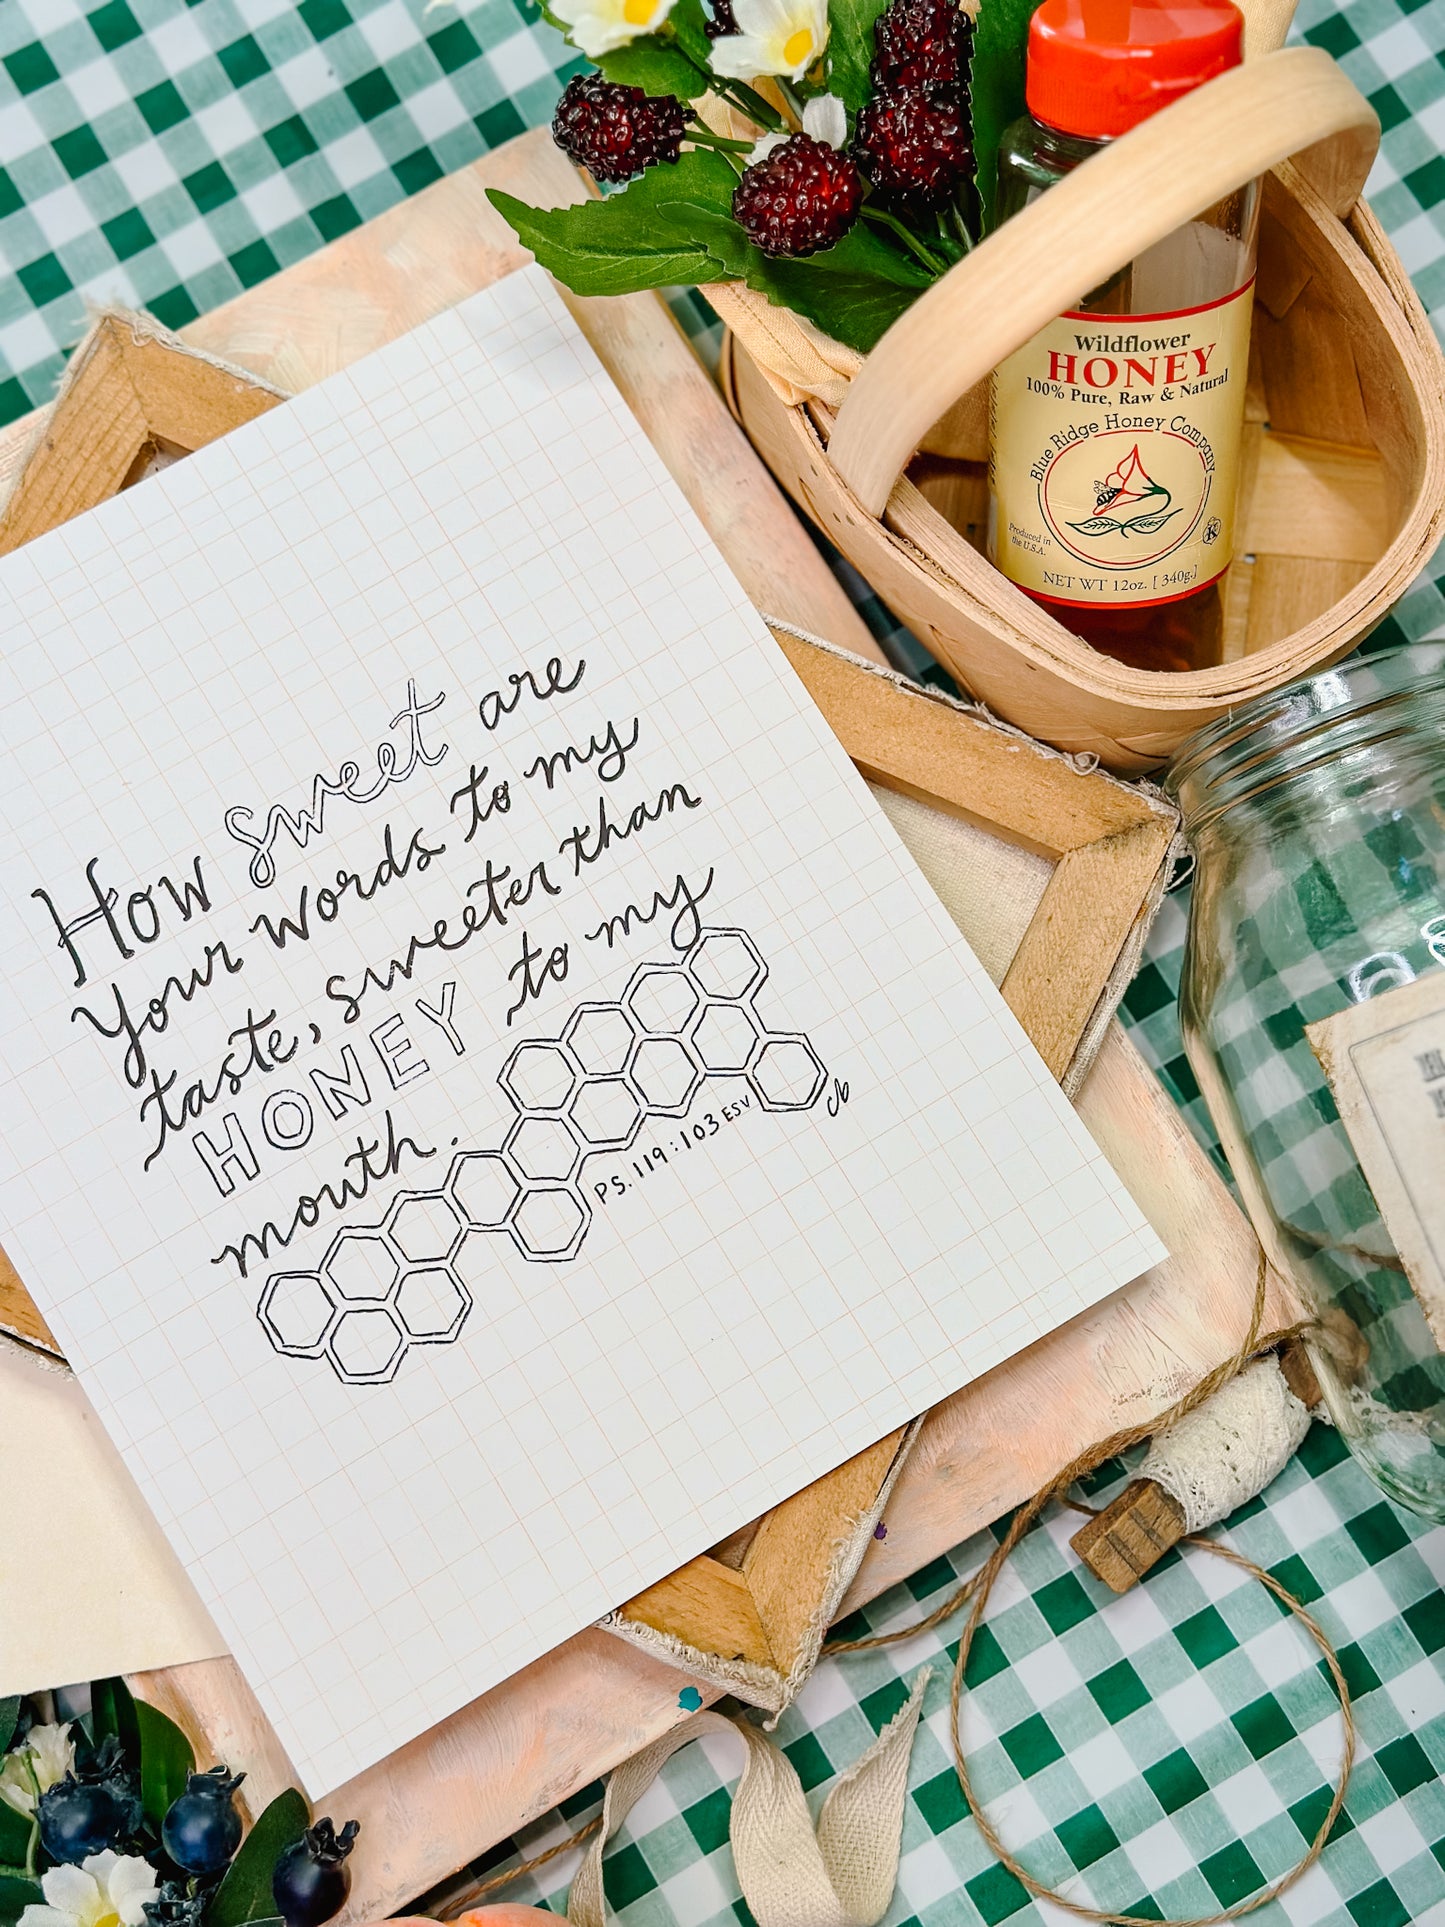 How sweet are
Your words to my
taste, sweeter than
HONEY to my
mouth.
PS. 119:103 ESV
cb
Wildflower
HONEY
100% Pure, Raw & Natural
Blue Ridge Honey Company
Produced in
the U.S.A.
K
NET WT 12oz. [340g.]